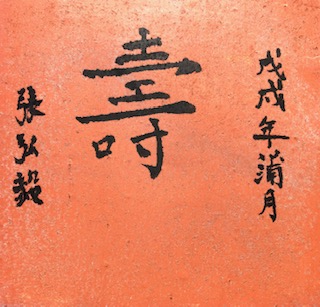 戊戌年蒲月
壽
張弘毅